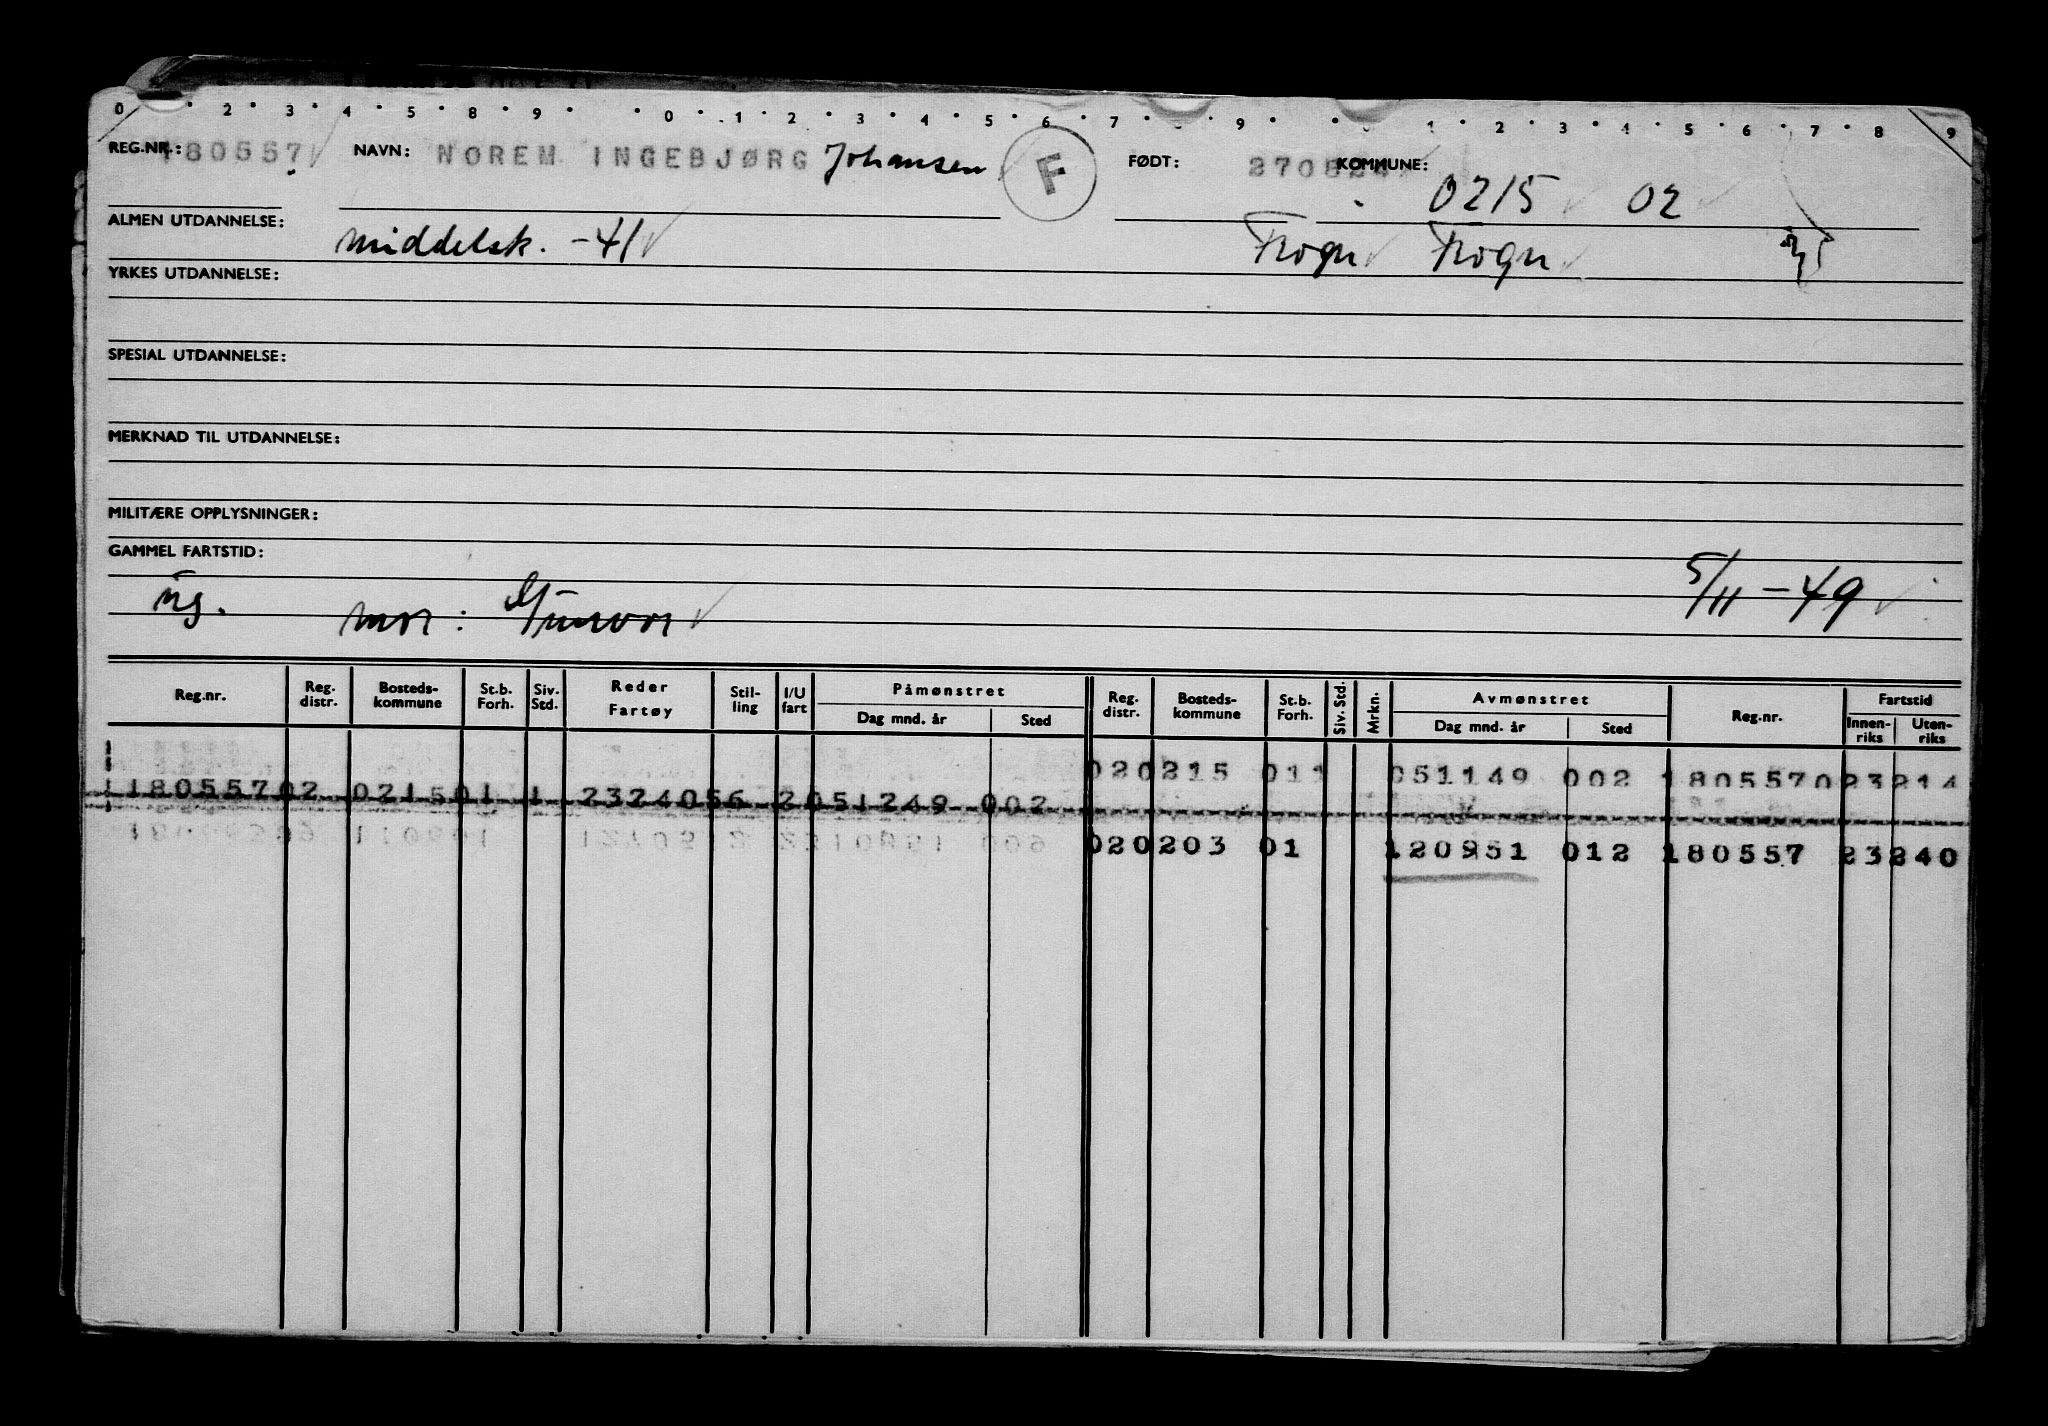 0 2 3 4 5 8 9 0 1 2 3 4 5 6 7 9 1 2 3 4 5 6 7 8 9
REG.NR.: 180557 NAVN: NOREM INGEBJØRG Johansen F FØDT: 270824 KOMMUNE:
0215 02
ALMEN UTDANNELSE: middelsk. -41 Frogn Frogn
YRKES UTDANNELSE:
SPESIAL UTDANNELSE:
MERKNAD TIL UTDANNELSE:
MILITÆRE OPPLYSNINGER:
GAMMEL FARTSTID:
ug. mor: Gunvor 5/11-49
Reg.nr. Reg. distr. Bosteds-kommune St.b. Forh. Siv. Std. Reder Fartøy Stil-ling I/U fart Påmønstret Dag mnd. år Sted Reg. distr. Bosteds-kommune St.b. Forh. Siv. Std. Mrkn. Avmønstret Dag mnd. år Sted Reg.nr. Fartstid Innen-riks Uten-riks
020215 011 051149 002 180557023214
18055702 021501 1 2324056 2051249 002
020203 01 120951 012 180557 23240